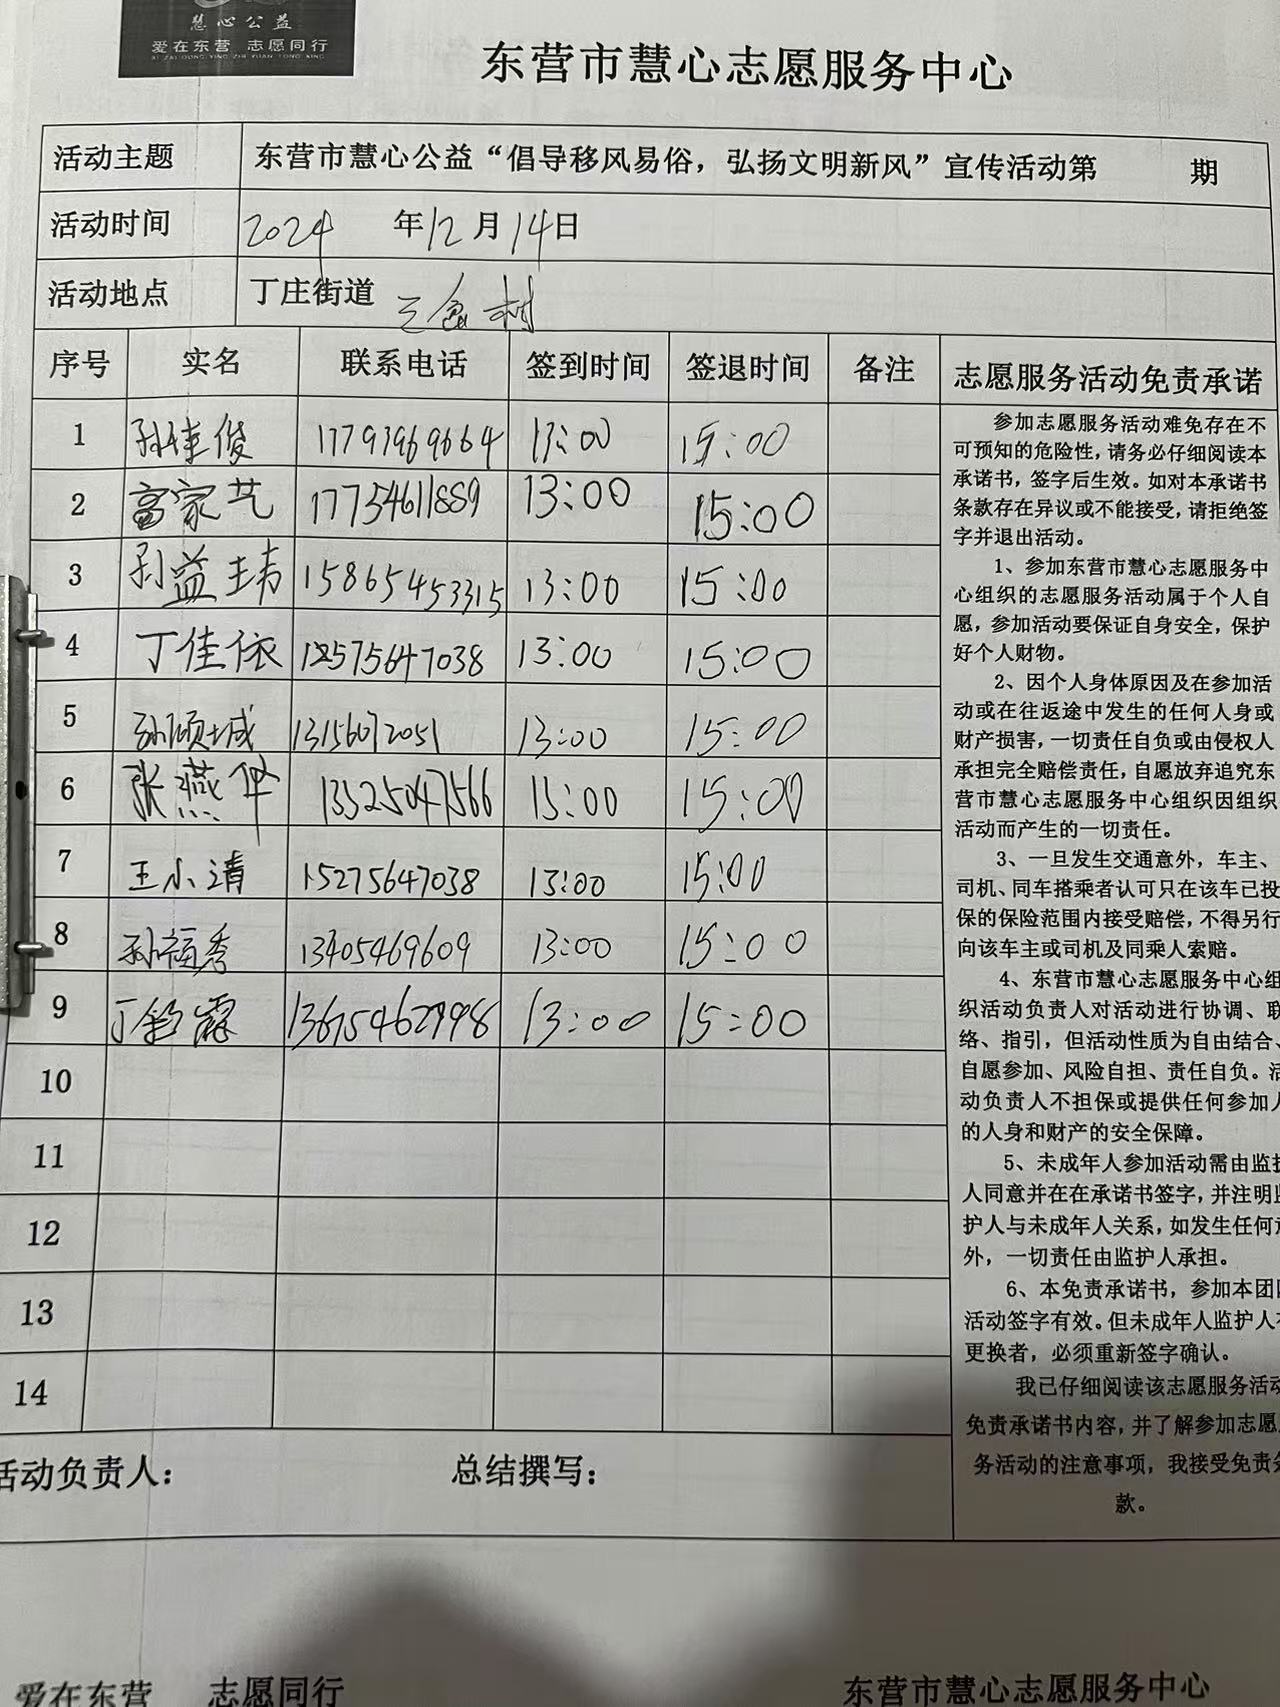 慧心公益
爱在东营 志愿同行
AI ZAI DONG YING ZHI YUAN TONG XING
东营市慧心志愿服务中心
活动主题 东营市慧心公益“倡导移风易俗，弘扬文明新风”宣传活动第 期
活动时间 2024 年12月14日
活动地点 丁庄街道 三畲村
序号 实名 联系电话 签到时间 签退时间 备注
1 孙佳俊 17793969664 13:00 15:00
2 富家艺 17754611889 13:00 15:00
3 孙益玮 15865453315 13:00 15:00
4 丁佳依 15275647038 13:00 15:00
5 孙倾城 13156072051 13:00 15:00
6 张燕华 13325047566 13:00 15:00
7 王小清 15275647038 13:00 15:00
8 孙福秀 13405469609 13:00 15:00
9 丁钧霖 13675462998 13:00 15:00
10
11
12
13
14
活动负责人： 总结撰写：
志愿服务活动免责承诺
参加志愿服务活动难免存在不
可预知的危险性，请务必仔细阅读本
承诺书，签字后生效。如对本承诺书
条款存在异议或不能接受，请拒绝签
字并退出活动。
1、参加东营市慧心志愿服务中
心组织的志愿服务活动属于个人自
愿，参加活动要保证自身安全，保护
好个人财物。
2、因个人身体原因及在参加活
动或在往返途中发生的任何人身或
财产损害，一切责任自负或由侵权人
承担完全赔偿责任，自愿放弃追究东
营市慧心志愿服务中心组织因组织
活动而产生的一切责任。
3、一旦发生交通意外，车主、
司机、同车搭乘者认可只在该车已投
保的保险范围内接受赔偿，不得另行
向该车主或司机及同乘人索赔。
4、东营市慧心志愿服务中心组
织活动负责人对活动进行协调、联
络、指引，但活动性质为自由结合、
自愿参加、风险自担、责任自负。活
动负责人不担保或提供任何参加人
的人身和财产的安全保障。
5、未成年人参加活动需由监护
人同意并在在承诺书签字，并注明监
护人与未成年人关系，如发生任何意
外，一切责任由监护人承担。
6、本免责承诺书，参加本团队
活动签字有效。但未成年人监护人有
更换者，必须重新签字确认。
我已仔细阅读该志愿服务活动
免责承诺书内容，并了解参加志愿服
务活动的注意事项，我接受免责条
款。
爱在东营 志愿同行 东营市慧心志愿服务中心